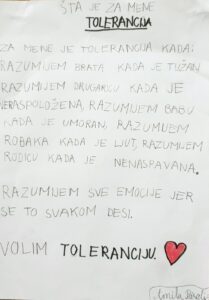 ŠTA JE ZA MENE
TOLERANCIJA
ZA MENE JE TOLERANCIJA KADA:
RAZUMIJEM BRATA KADA JE TUŽAN,
RAZUMIJEM DRUGARICU KADA JE
NERASPOLOŽENA, RAZUMIJEM BABU
KADA JE UMORAN, RAZUMIJEM
ROBAKA KADA JE LJUT, RAZUMIJEM
RODICU KADA JE NENASPAVANA.
RAZUMIJEM SVE EMOCIJE JER
SE TO SVAKOM DESI.
VOLIM TOLERANCIJU